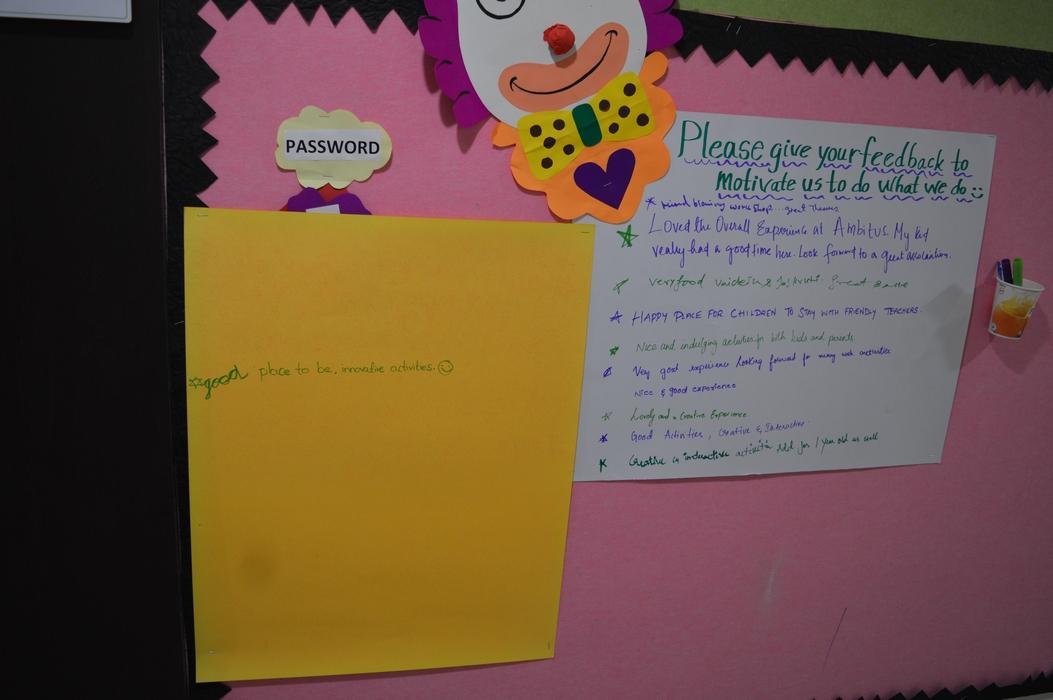 PASSWORD
Please give your feedback to
motivate us to do what we do
mind blowing workshop... great themes
Loved the Overall Experience at Ambitus. My kid
really had a good time here. Look forward to a great association.
very good Great
HAPPY PLACE FOR CHILDREN TO STAY WITH FRIENDLY TEACHERS.
Nice and indulging activities for both kids and parents
Very good experience looking forward for many such activities
Nice & good experience
Lovely and a Creative Experience
Good Activities, Creative & Interactive.
Creative & interactive activities Add for 1 year old as well
good place to be, innovative activities.